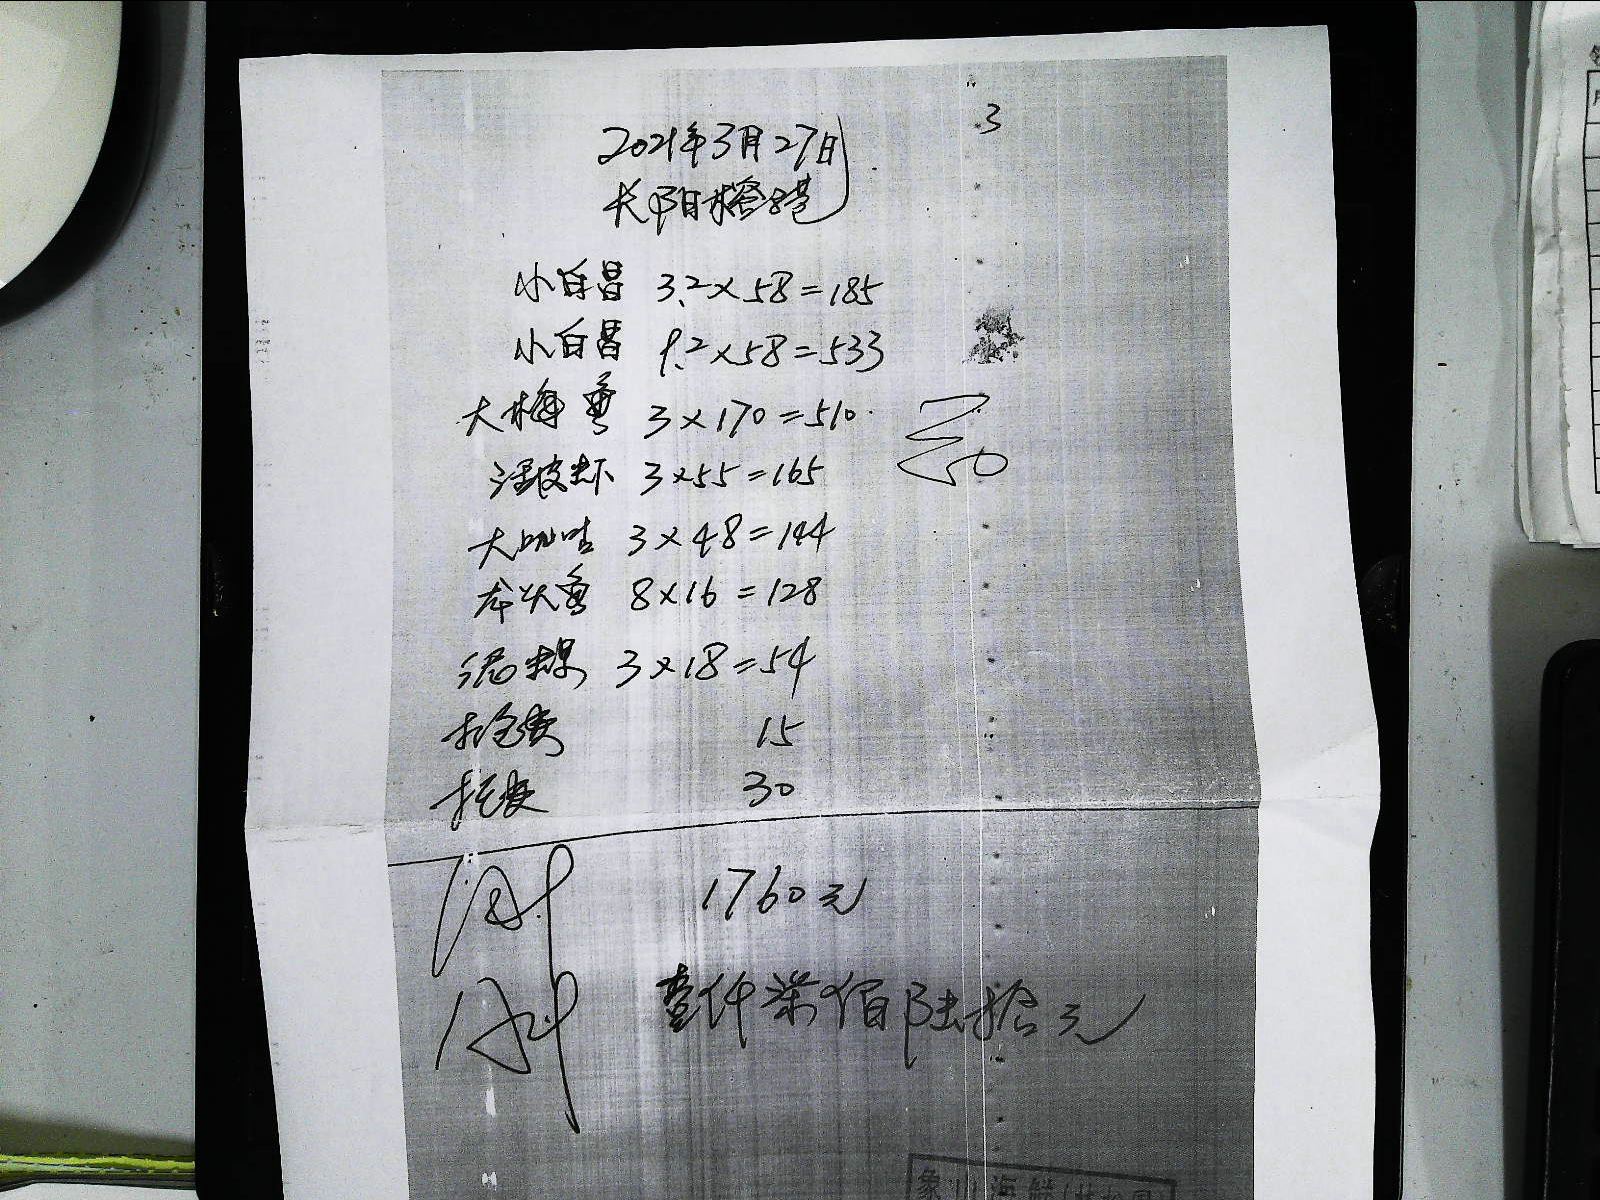 3
2021年3月27日
长阳榕港
小白昌 3.2×58=185
小白昌 9.2×58=533
大梅鱼 3×170=510
滑皮虾 3×55=165
大 3×48=144
龙头鱼 8×16=128
3×18=54
15
托费 30
1760元
壹仟柒佰陆拾元
象山海鲜